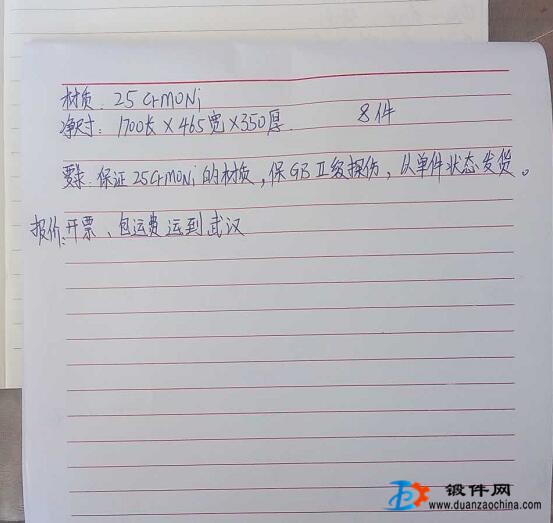 材质: 25CrMoNi
净尺寸: 1700长×465宽×350厚. 8件
要求: 保证25CrMoNi的材质, 保GB II级探伤, 以单件状态发货。
报价: 开票、包运费运到武汉
锻件网
www.duanzaochina.com